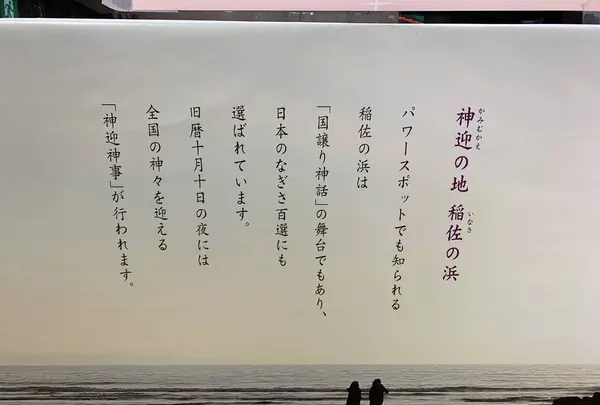 神迎の地 稲佐の浜
かみむかえ
いなさ
パワースポットでも知られる
稲佐の浜は
「国譲り神話」の舞台でもあり、
日本のなぎさ百選にも
選ばれています。
旧暦十月十日の夜には
全国の神々を迎える
「神迎神事」が行われます。